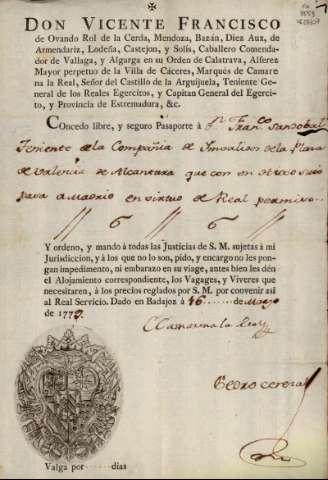 ✠
DON VICENTE FRANCISCO
de Ovando Rol de la Cerda, Mendoza, Bazán, Diez Aux, de
Armendariz, Lodeña, Castejon, y Solís, Caballero Comenda-
dor de Vallaga, y Algarga en su Orden de Calatrava, Alferez
Mayor perpetuo de la Villa de Cáceres, Marqués de Camare-
na la Real, Señor del Castillo de la Arguijuela, Teniente Ge-
neral de los Reales Egercitos, y Capitan General del Egerci-
to, y Provincia de Estremadura, &c.
Concedo libre, y seguro Pasaporte à Dn. Franco. Sandobal
Teniente de la Compañia de Imbalidos de la Plaza
de Valencia de Alcantara que con un criado suio
pasa a Madrid en virtud de Real permiso
Y ordeno, y mando à todas las Justicias de S. M. sujetas à mi
Jurisdiccion, y à los que no lo son, pido, y encargo no les pon-
gan impedimento, ni embarazo en su viage, antes bien les dén
el Alojamiento correspondiente, los Vagages, y Viveres que
necesitaren, à los precios reglados por S. M. por convenir asi
al Real Servicio. Dado en Badajoz à 16 de Mayo
de 1779.
CCamarena la Real
Pedro
Valga por dias